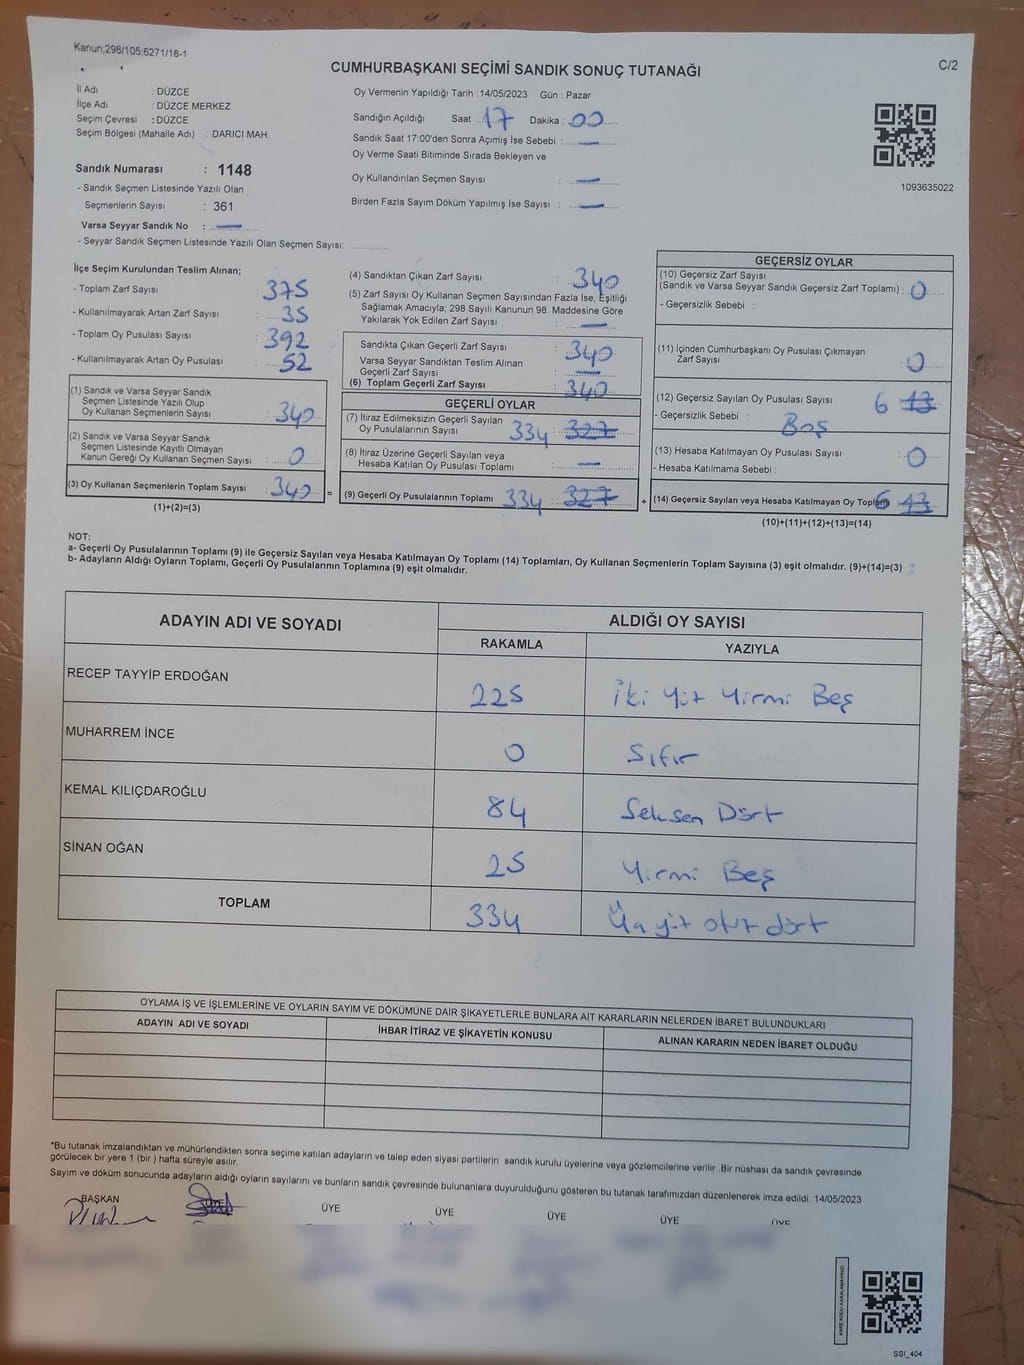 Kanun;298/105,6271/18-1
C/2
CUMHURBAŞKANI SEÇİMİ SANDIK SONUÇ TUTANAĞI
İl Adı : DÜZCE
İlçe Adı : DÜZCE MERKEZ
Seçim Çevresi : DÜZCE
Seçim Bölgesi (Mahalle Adı) : DARICI MAH.
Sandık Numarası : 1148
- Sandık Seçmen Listesinde Yazılı Olan
Seçmenlerin Sayısı : 361
Varsa Seyyar Sandık No : —
- Seyyar Sandık Seçmen Listesinde Yazılı Olan Seçmen Sayısı:
Oy Vermenin Yapıldığı Tarih : 14/05/2023 Gün : Pazar
Sandığın Açıldığı Saat 17 Dakika : 00
Sandık Saat 17:00'den Sonra Açımış İse Sebebi : —
Oy Verme Saati Bitiminde Sırada Bekleyen ve
Oy Kullandırılan Seçmen Sayısı : —
Birden Fazla Sayım Döküm Yapılmış İse Sayısı : —
1093635022
İlçe Seçim Kurulundan Teslim Alınan;
- Toplam Zarf Sayısı : 375
- Kullanılmayarak Artan Zarf Sayısı : 35
- Toplam Oy Pusulası Sayısı : 392
- Kullanılmayarak Artan Oy Pusulası : 52
(1) Sandık ve Varsa Seyyar Sandık
Seçmen Listesinde Yazılı Olup
Oy Kullanan Seçmenlerin Sayısı : 340
(2) Sandık ve Varsa Seyyar Sandık
Seçmen Listesinde Kayıtlı Olmayan
Kanun Gereği Oy Kullanan Seçmen Sayısı : 0
(3) Oy Kullanan Seçmenlerin Toplam Sayısı : 340 =
(1)+(2)=(3)
(4) Sandıktan Çıkan Zarf Sayısı : 340
(5) Zarf Sayısı Oy Kullanan Seçmen Sayısından Fazla İse, Eşitliği
Sağlamak Amacıyla; 298 Sayılı Kanunun 98. Maddesine Göre
Yakılarak Yok Edilen Zarf Sayısı : —
Sandıkta Çıkan Geçerli Zarf Sayısı : 340
Varsa Seyyar Sandıktan Teslim Alınan
Geçerli Zarf Sayısı : —
(6) Toplam Geçerli Zarf Sayısı : 340
GEÇERLİ OYLAR
(7) İtiraz Edilmeksizin Geçerli Sayılan
Oy Pusulalarının Sayısı 334 327
(8) İtiraz Üzerine Geçerli Sayılan veya
Hesaba Katılan Oy Pusulası Toplamı : —
(9) Geçerli Oy Pusulalarının Toplamı 334 327 +
GEÇERSİZ OYLAR
(10) Geçersiz Zarf Sayısı
(Sandık ve Varsa Seyyar Sandık Geçersiz Zarf Toplamı) : 0
- Geçersizlik Sebebi :
(11) İçinden Cumhurbaşkanı Oy Pusulası Çıkmayan
Zarf Sayısı : 0
(12) Geçersiz Sayılan Oy Pusulası Sayısı 6 13
- Geçersizlik Sebebi : Boş
(13) Hesaba Katılmayan Oy Pusulası Sayısı : 0
- Hesaba Katılmama Sebebi :
(14) Geçersiz Sayılan veya Hesaba Katılmayan Oy Toplamı 6 13
(10)+(11)+(12)+(13)=(14)
NOT:
a- Geçerli Oy Pusulalarının Toplamı (9) ile Geçersiz Sayılan veya Hesaba Katılmayan Oy Toplamı (14) Toplamları, Oy Kullanan Seçmenlerin Toplam Sayısına (3) eşit olmalıdır. (9)+(14)=(3)
b- Adayların Aldığı Oyların Toplamı, Geçerli Oy Pusulalarının Toplamına (9) eşit olmalıdır.
ADAYIN ADI VE SOYADI ALDIĞI OY SAYISI
RAKAMLA YAZIYLA
RECEP TAYYİP ERDOĞAN 225 İki Yüz Yirmi Beş
MUHARREM İNCE 0 Sıfır
KEMAL KILIÇDAROĞLU 84 Seksen Dört
SİNAN OĞAN 25 Yirmi Beş
TOPLAM 334 Üç yüz otuz dört
OYLAMA İŞ VE İŞLEMLERİNE VE OYLARIN SAYIM VE DÖKÜMÜNE DAİR ŞİKAYETLERLE BUNLARA AİT KARARLARIN NELERDEN İBARET BULUNDUKLARI
ADAYIN ADI VE SOYADI İHBAR İTİRAZ VE ŞİKAYETİN KONUSU ALINAN KARARIN NEDEN İBARET OLDUĞU
*Bu tutanak imzalandıktan ve mühürlendikten sonra seçime katılan adayların ve talep eden siyasi partilerin sandık kurulu üyelerine veya gözlemcilerine verilir. Bir nüshası da sandık çevresinde
görülecek bir yere 1 (bir) hafta süreyle asılır.
Sayım ve döküm sonucunda adayların aldığı oyların sayılarını ve bunların sandık çevresinde bulunanlara duyurulduğunu gösteren bu tutanak tarafımızdan düzenlenerek imza edildi. 14/05/2023
BAŞKAN ÜYE ÜYE ÜYE ÜYE ÜYE
SSI_404